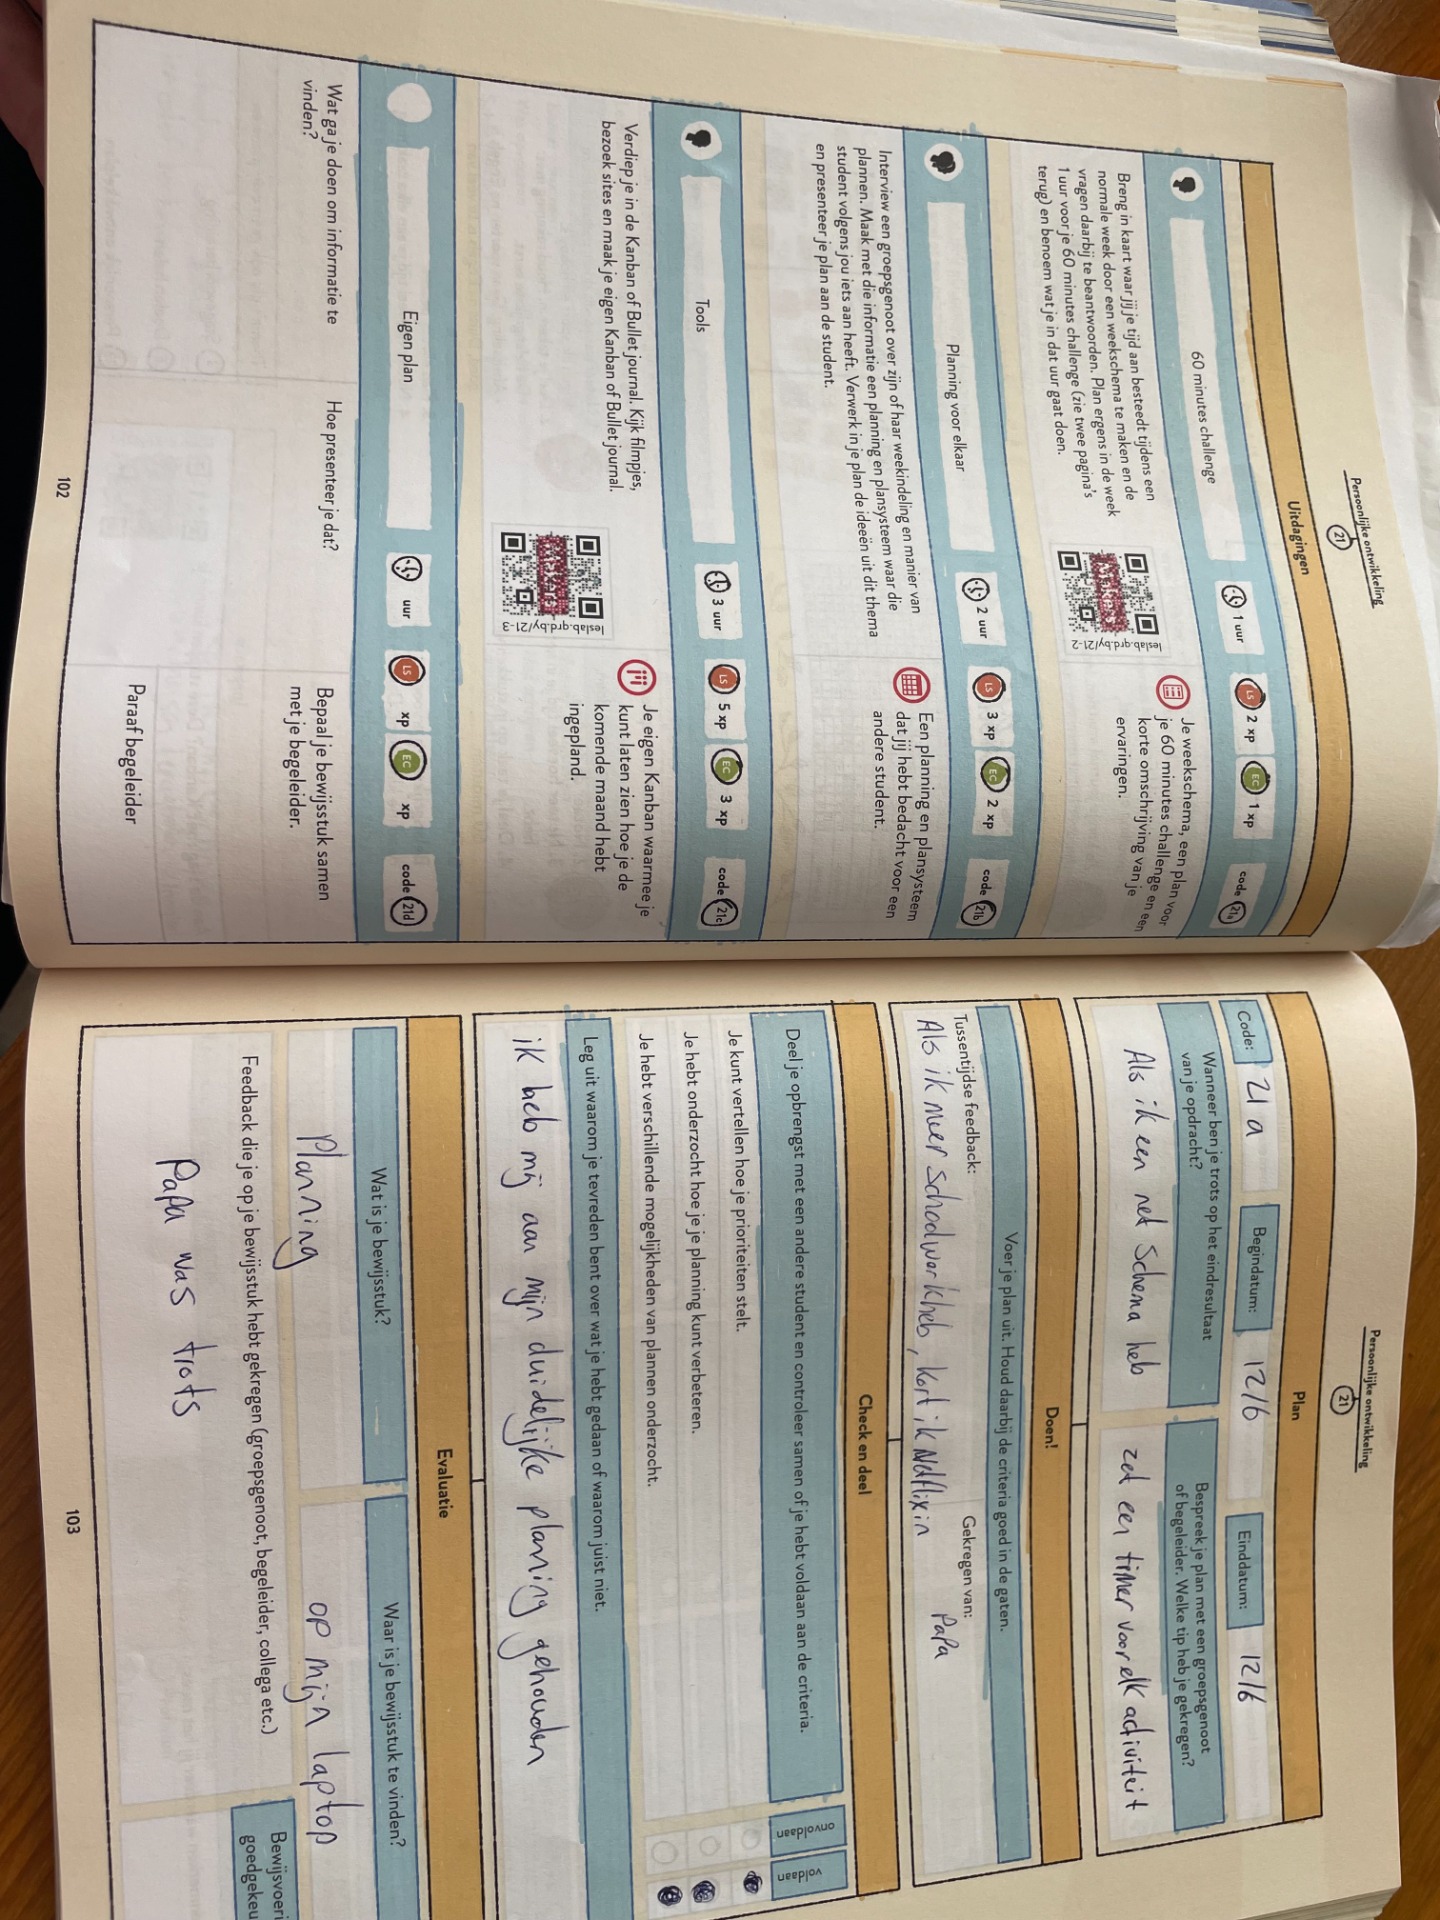 Persoonlijke ontwikkeling
21
Uitdagingen
60 minutes challenge
1 uur
LS 2 xp
EC 1 xp
code 21a
Breng in kaart waar jij je tijd aan besteedt tijdens een
normale week door een weekschema te maken en de
vragen daarbij te beantwoorden. Plan ergens in de week
1 uur voor je 60 minutes challenge (zie twee pagina's
terug) en benoem wat je in dat uur gaat doen.
leslab.qrd.by/21-2
Je weekschema, een plan voor
je 60 minutes challenge en een
korte omschrijving van je
ervaringen.
Planning voor elkaar
2 uur
LS 3 xp
EC 2 xp
code 21b
Interview een groepsgenoot over zijn of haar weekindeling en manier van
plannen. Maak met die informatie een planning en plansysteem waar die
student volgens jou iets aan heeft. Verwerk in je plan de ideeën uit dit thema
en presenteer je plan aan de student.
Een planning en plansysteem
dat jij hebt bedacht voor een
andere student.
Tools
3 uur
LS 5 xp
EC 3 xp
code 21c
Verdiep je in de Kanban of Bullet journal. Kijk filmpjes,
bezoek sites en maak je eigen Kanban of Bullet journal.
leslab.qrd.by/21-3
Je eigen Kanban waarmee je
kunt laten zien hoe je de
komende maand hebt
ingepland.
Eigen plan
uur
LS xp
EC xp
code 21d
Wat ga je doen om informatie te
vinden?
Hoe presenteer je dat?
Bepaal je bewijsstuk samen
met je begeleider.
Paraaf begeleider
102
Persoonlijke ontwikkeling
21
Plan
Code: 21a
Begindatum: 12/6
Einddatum: 12/6
Wanneer ben je trots op het eindresultaat
van je opdracht?
Als ik een net Schema heb
Bespreek je plan met een groepsgenoot
of begeleider. Welke tip heb je gekregen?
zet een timer voor elk activiteit
Doen!
Voer je plan uit. Houd daarbij de criteria goed in de gaten.
Tussentijdse feedback:
Als ik meer schoolwerk heb, kort ik Netflix in
Gekregen van:
Papa
Check en deel
Deel je opbrengst met een andere student en controleer samen of je hebt voldaan aan de criteria.
onvoldaan
voldaan
Je kunt vertellen hoe je prioriteiten stelt.
Je hebt onderzocht hoe je je planning kunt verbeteren.
Je hebt verschillende mogelijkheden van plannen onderzocht.
Leg uit waarom je tevreden bent over wat je hebt gedaan of waarom juist niet.
ik heb mij aan mijn duidelijke planing gehouden
Evaluatie
Wat is je bewijsstuk?
Planning
Waar is je bewijsstuk te vinden?
op mijn laptop
Feedback die je op je bewijsstuk hebt gekregen (groepsgenoot, begeleider, collega etc.)
Papa was trots
Bewijsvoeri
goedgekeu
103